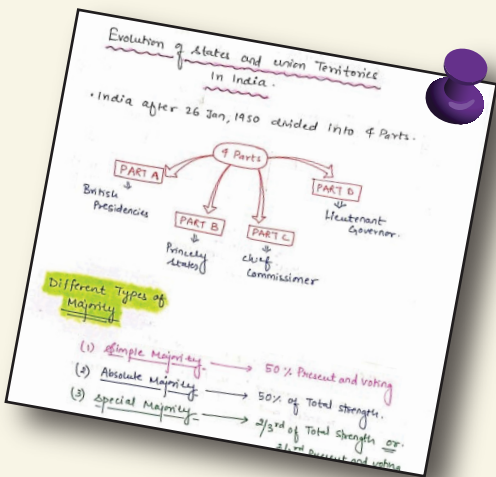 Evolution of states and union Territories
In India.
• India after 26 Jan, 1950 divided into 4 Parts.
4 Parts
PART A
British
Presidencies
PART B
Princely
States
PART C
Chief
Commissioner
PART D
Lieutenant
Governor.
Different Types of
Majority
(1) Simple Majority → 50% Present and voting
(2) Absolute Majority → 50% of Total strength.
(3) Special Majority → 2/3rd of Total strength or
2/3rd Present and voting